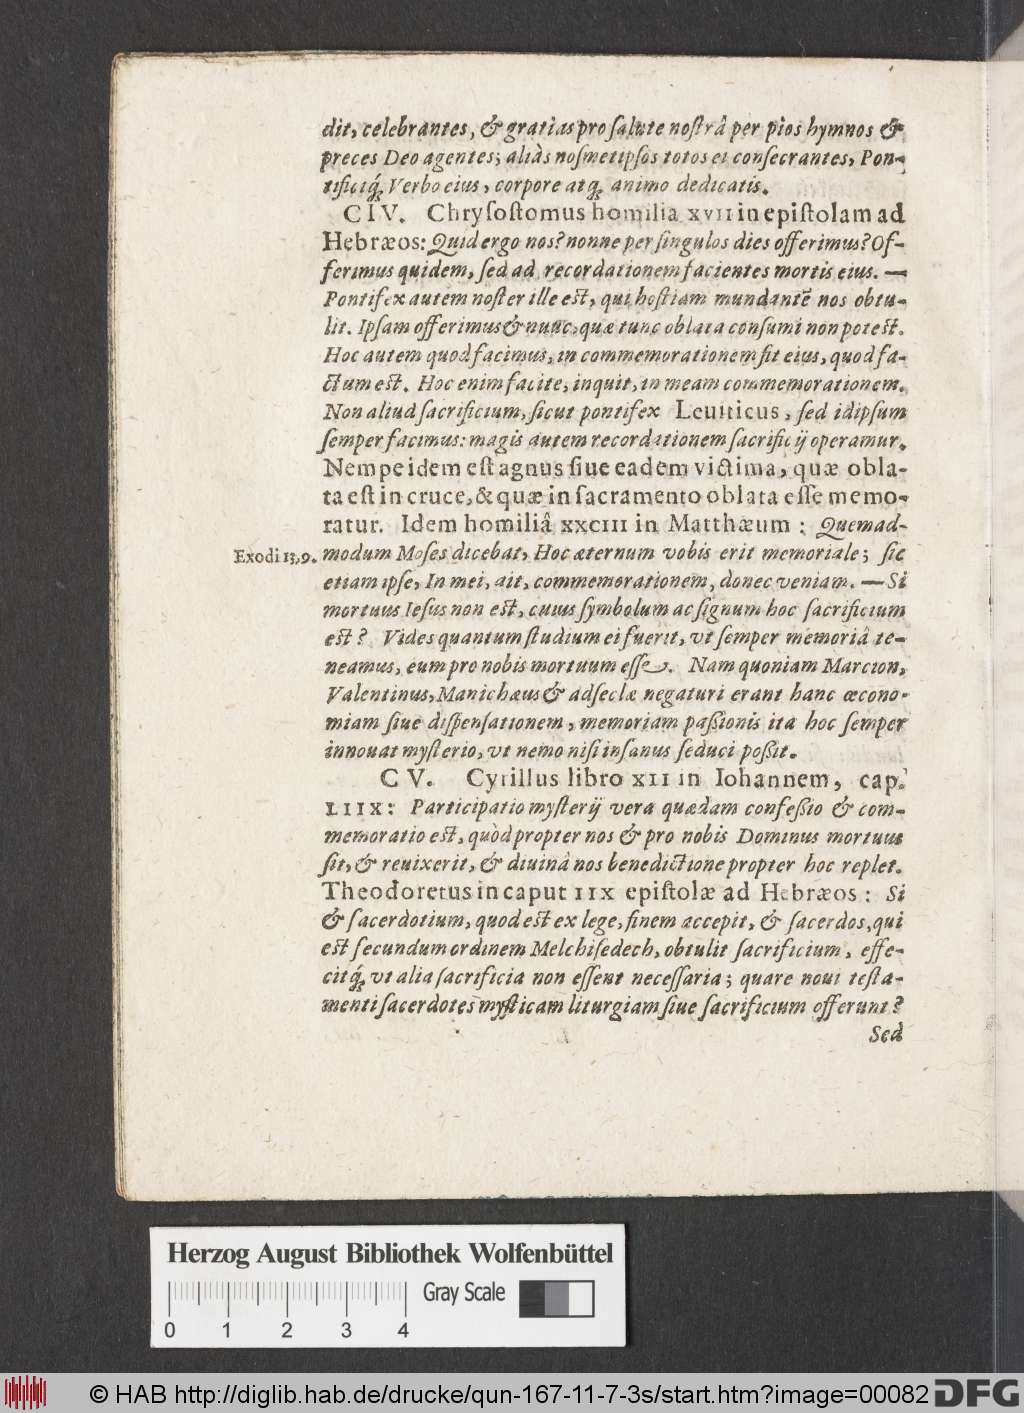 dit, celebrantes, & gratias pro ſalute noſtrâ per pios hymnos &
preces Deo agentes; aliàs noſmetipſos totos ei conſecrantes, Pon-
tificiq́; Verbo eius, corpore atq; animo dedicatis.
CIV. Chryſoſtomus homilia XVII in epiſtolam ad
Hebræos: Quid ergo nos? nonne per ſingulos dies offerimus? Of-
ferimus quidem, ſed ad recordationem facientes mortis eius. —
Pontifex autem noſter ille eſt, qui hoſtiam mundantē nos obtu-
lit. Ipſam offerimus & nunc, quæ tunc oblata conſumi non poteſt.
Hoc autem quod facimus, in commemorationem fit eius, quod fa-
ctum eſt. Hoc enim facite, inquit, in meam commemorationem.
Non aliud ſacrificium, ſicut pontifex Leuiticus, ſed idipſum
ſemper facimus: magis autem recordationem ſacrificij operamur.
Nempe idem eſt agnus ſiue eadem victima, quæ obla-
ta eſt in cruce, & quæ in ſacramento oblata eſſe memo-
ratur. Idem homiliâ XXCIII in Matthæum: Quemad-
Exodi 13,9. modum Moſes dicebat, Hoc æternum vobis erit memoriale; ſic
etiam ipſe, In mei, ait, commemorationem, donec veniam. — Si
mortuus Ieſus non eſt, cuius ſymbolum ac ſignum hoc ſacrificium
eſt? Vides quantum ſtudium ei fuerit, vt ſemper memoriâ te-
neamus, eum pro nobis mortuum eſſe. Nam quoniam Marcion,
Valentinus, Manichæus & adſeclæ negaturi erant hanc œcono-
miam ſiue diſpenſationem, memoriam paßionis ita hoc ſemper
innouat myſterio, vt nemo niſi inſanus ſeduci poßit.
CV. Cyrillus libro XII in Iohannem, cap.
LIIX: Participatio myſterij vera quædam confeßio & com-
memoratio eſt, quòd propter nos & pro nobis Dominus mortuus
ſit, & reuixerit, & diuinâ nos benedictione propter hoc replet.
Theodoretus in caput IIX epiſtolæ ad Hebræos: Si
& ſacerdotium, quod eſt ex lege, finem accepit, & ſacerdos, qui
eſt ſecundum ordinem Melchiſedech, obtulit ſacrificium, effe-
citq́; vt alia ſacrificia non eſſent neceſſaria; quare noui teſta-
menti ſacerdotes myſticam liturgiam ſiue ſacrificium offerunt?
Sed
Herzog August Bibliothek Wolfenbüttel
Gray Scale
0 1 2 3 4
© HAB http://diglib.hab.de/drucke/qun-167-11-7-3s/start.htm?image=00082
DFG